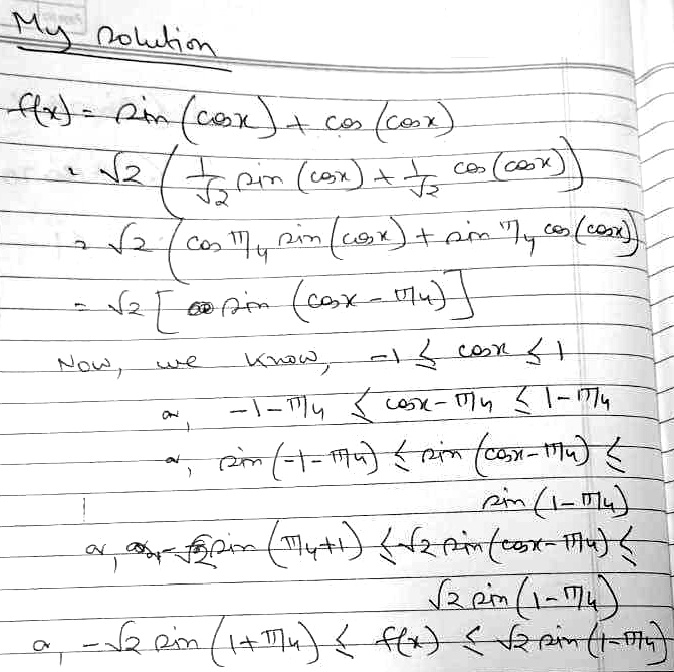 My solution
f(x) = sin (cosx) + cos (cosx)
= √2 ( 1/√2 sin (cosx) + 1/√2 cos (cosx))
= √2 (cos π/4 sin (cosx) + sin π/4 cos (cosx))
= √2 [ sin (cosx - π/4)]
Now, we know, -1 ≤ cosx ≤ 1
or, -1-π/4 ≤ cosx-π/4 ≤ 1-π/4
or, sin (-1-π/4) ≤ sin (cosx-π/4) ≤
sin (1-π/4)
or, -√2 sin (π/4+1) ≤ √2 sin (cosx-π/4) ≤
√2 sin (1-π/4)
or, -√2 sin (1+π/4) ≤ f(x) ≤ √2 sin (1-π/4)